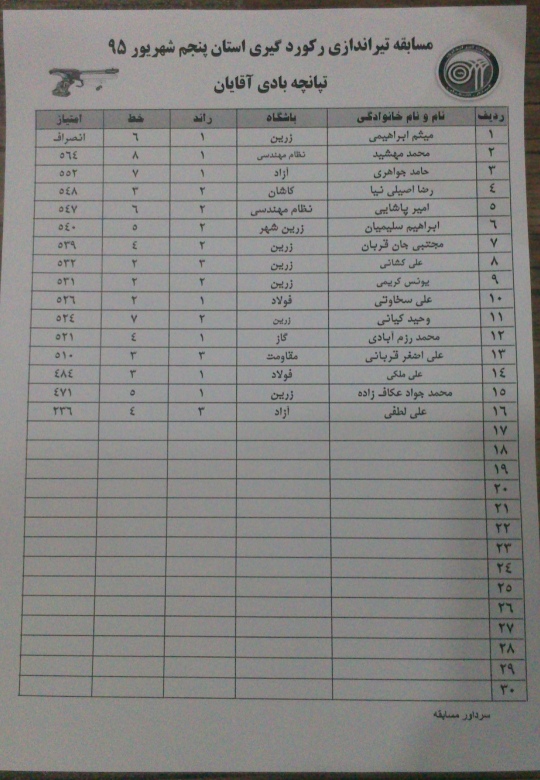 مسابقه تیراندازی رکورد گیری استان پنجم شهریور ۹۵
تپانچه بادی آقایان
ردیف نام و نام خانوادگی باشگاه راند خط امتیاز
۱ میثم ابراهیمی زرین ۱ ۶ انصراف
۲ محمد مهشید نظام مهندسی ۱ ۸ ۵۶۴
۳ حامد جواهری آزاد ۱ ۷ ۵۵۲
۴ رضا اصیلی نیا کاشان ۲ ۳ ۵۴۸
۵ امیر پاشایی نظام مهندسی ۲ ۶ ۵۴۷
۶ ابراهیم سلیمیان زرین شهر ۲ ۵ ۵۴۰
۷ مجتبی جان قربان زرین ۲ ۴ ۵۳۹
۸ علی کشانی زرین ۳ ۲ ۵۳۲
۹ یونس کریمی زرین ۲ ۲ ۵۳۱
۱۰ علی سخاوتی فولاد ۱ ۲ ۵۲۶
۱۱ وحید کیانی زرین ۲ ۷ ۵۲۴
۱۲ محمد رزم آبادی گاز ۱ ۴ ۵۲۱
۱۳ علی اصغر قربانی مقاومت ۳ ۳ ۵۱۰
۱۴ علی ملکی فولاد ۱ ۳ ۴۸۴
۱۵ محمد جواد عکاف زاده زرین ۱ ۵ ۴۷۱
۱۶ علی لطفی آزاد ۳ ۴ ۲۳۶
۱۷
۱۸
۱۹
۲۰
۲۱
۲۲
۲۳
۲۴
۲۵
۲۶
۲۷
۲۸
۲۹
۳۰
سرداور مسابقه